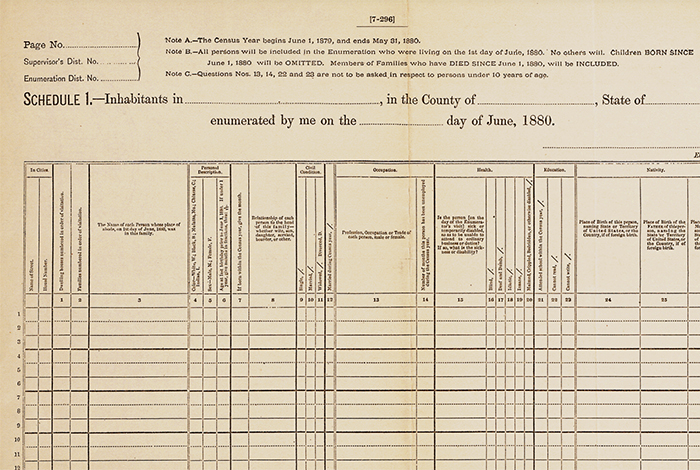 [7-296]
Page No.
Supervisor's Dist. No.
Enumeration Dist. No.
Note A.—The Census Year begins June 1, 1879, and ends May 31, 1880.
Note B.—All persons will be included in the Enumeration who were living on the 1st day of June, 1880. No others will. Children BORN SINCE
June 1, 1880 will be OMITTED. Members of Families who have DIED SINCE June 1, 1880, will be INCLUDED.
Note C.—Questions Nos. 13, 14, 22 and 23 are not to be asked in respect to persons under 10 years of age.
SCHEDULE 1.—Inhabitants in , in the County of , State of
enumerated by me on the day of June, 1880.
In Cities.
Name of Street.
House Number.
Dwelling houses numbered in order of visitation.
Families numbered in order of visitation.
The Name of each Person whose place of
abode, on 1st day of June, 1880, was
in this family.
Personal Description.
Color—White, W.; Black, B.; Mulatto, Mu.; Chinese, C.; Indian, I.
Sex—Male, M.; Female, F.
Age at last birthday prior to June 1, 1880. If under 1 year, give months in fractions, thus:
If born within the Census year, give the month.
Relationship of each
person to the head
of this family—
whether wife, son,
daughter, servant,
boarder, or other.
Civil Condition.
Single, /
Married, /
Widowed, / Divorced, D.
Married during Census year, /
Occupation.
Profession, Occupation or Trade of
each person, male or female.
Number of months this person has been unemployed during the Census year.
Health.
Is the person [on
the day of the
Enumerator's
visit] sick or
temporarily disabled,
so as to be unable to
attend to ordinary
business or duties?
If so, what is the sickness
or disability?
Blind, /
Deaf and Dumb, /
Idiotic, /
Insane, /
Maimed, Crippled, Bedridden, or otherwise disabled, /
Education.
Attended school within the Census year, /
Cannot read, /
Cannot write, /
Nativity.
Place of Birth of this person,
naming State or Territory
of United States, or the
Country, if of foreign birth.
Place of Birth of the
Father of this person,
naming the State
or Territory of
United States, or
the Country, if of
foreign birth.
1 2 3 4 5 6 7 8 9 10 11 12 13 14 15 16 17 18 19 20 21 22 23 24 25
1
2
3
4
5
6
7
8
9
10
11
12